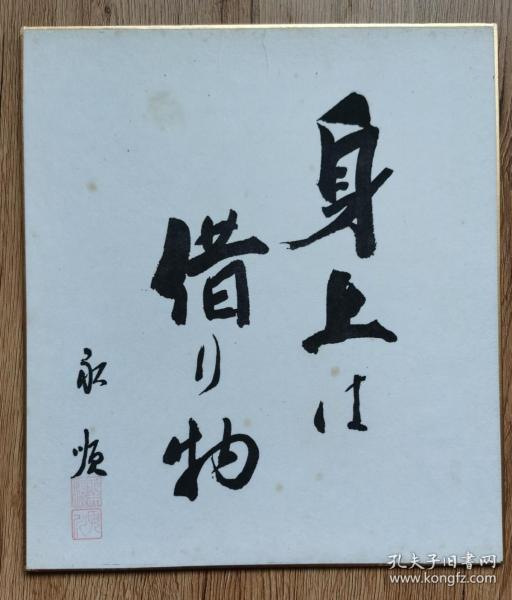 身上は
借り物
永順
孔夫子旧书网
www.kongfz.com